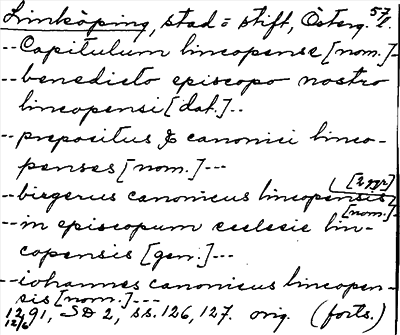 Linköping, stad = stift, Österg. l. 57
-- Capitulum lincopense [nom.] --
-- benedicto episcopo nostro
lincopensi [dat.] --
-- prepositus & canonici linco-
penses [nom.] ---
-- birgerus canonicus lincopensis [2 ggr] [nom.] --
-- in episcopum ecclesie lin-
copensis [gen.] ---
-- iohannes canonicus lincopen-
sis [nom.] ---
1291, SD 2, ss. 126, 127. orig. (forts.)
12/6